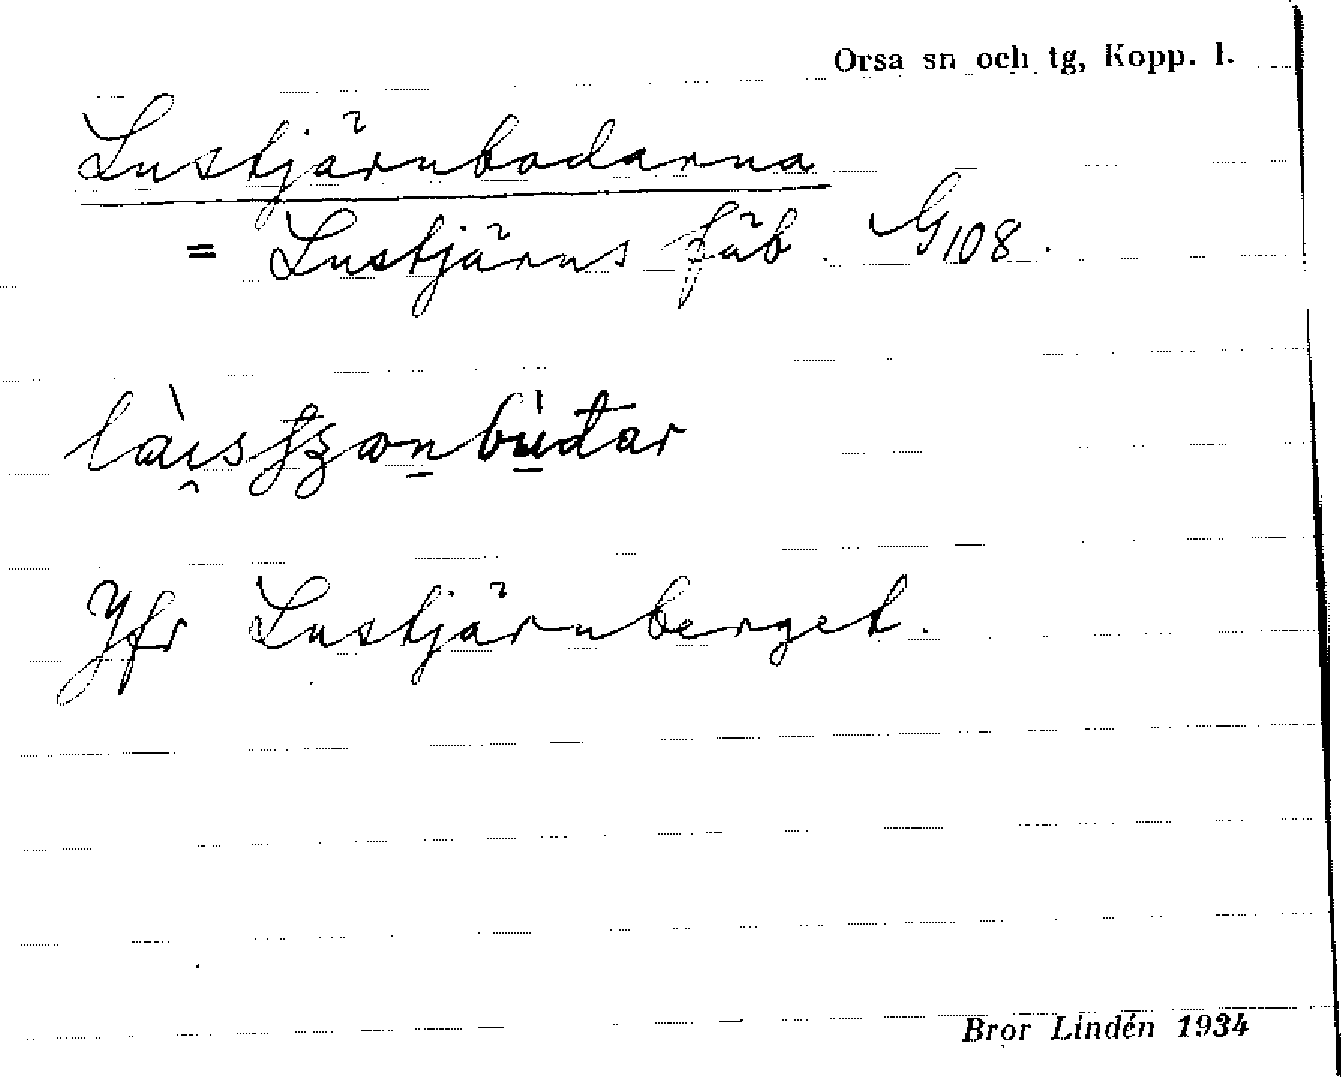 Orsa sn och tg, Kopp. l.
Lustjärnbodarna
= Lustjärns fäb. G108.
Jfr Lustjärnberget.
Bror Lindén 1934